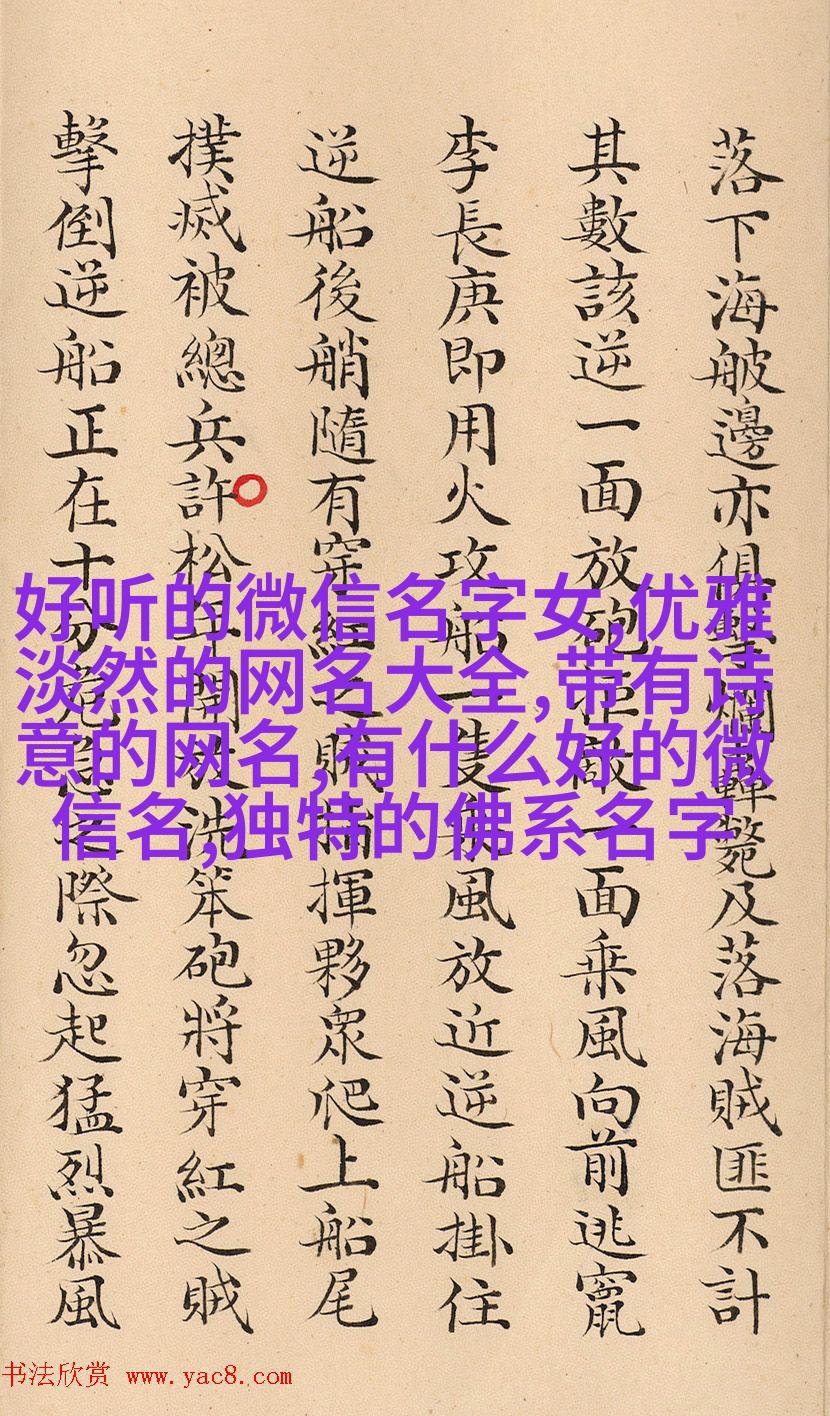 落下海邊亦俱擊爛轟斃及落海賊匪不計
其數該逆一面放砲拒敵一面乗風向前逃竄
李長庚即用火攻船一隻乗風放近逆船掛住
逆船後艄隨有穿紅之賊指揮夥眾爬上船尾
撲滅被總兵許松年開放洗笨砲將穿紅之賊
擊倒逆船正在十分危急之際忽起猛烈暴風
好听的微信名字女,优雅
淡然的网名大全,带有诗
意的网名,有什么好的微
信名,独特的佛系名字
书法欣赏 www.yac8.com